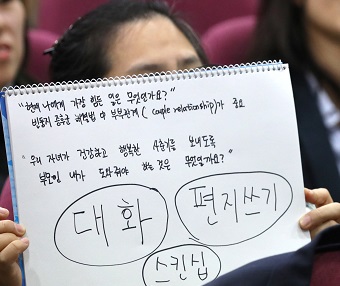 "현재 나에게 가장 힘든 일은 무엇인가요?"
빈둥지 증후군 해결법 中 부부관계(couple relationship)가 중요
"우리 자녀가 건강하고 행복한 사춘기를 보내도록
부모인 내가 도와줘야 하는 것은 무엇인가요?"
대화
편지쓰기
스킨십